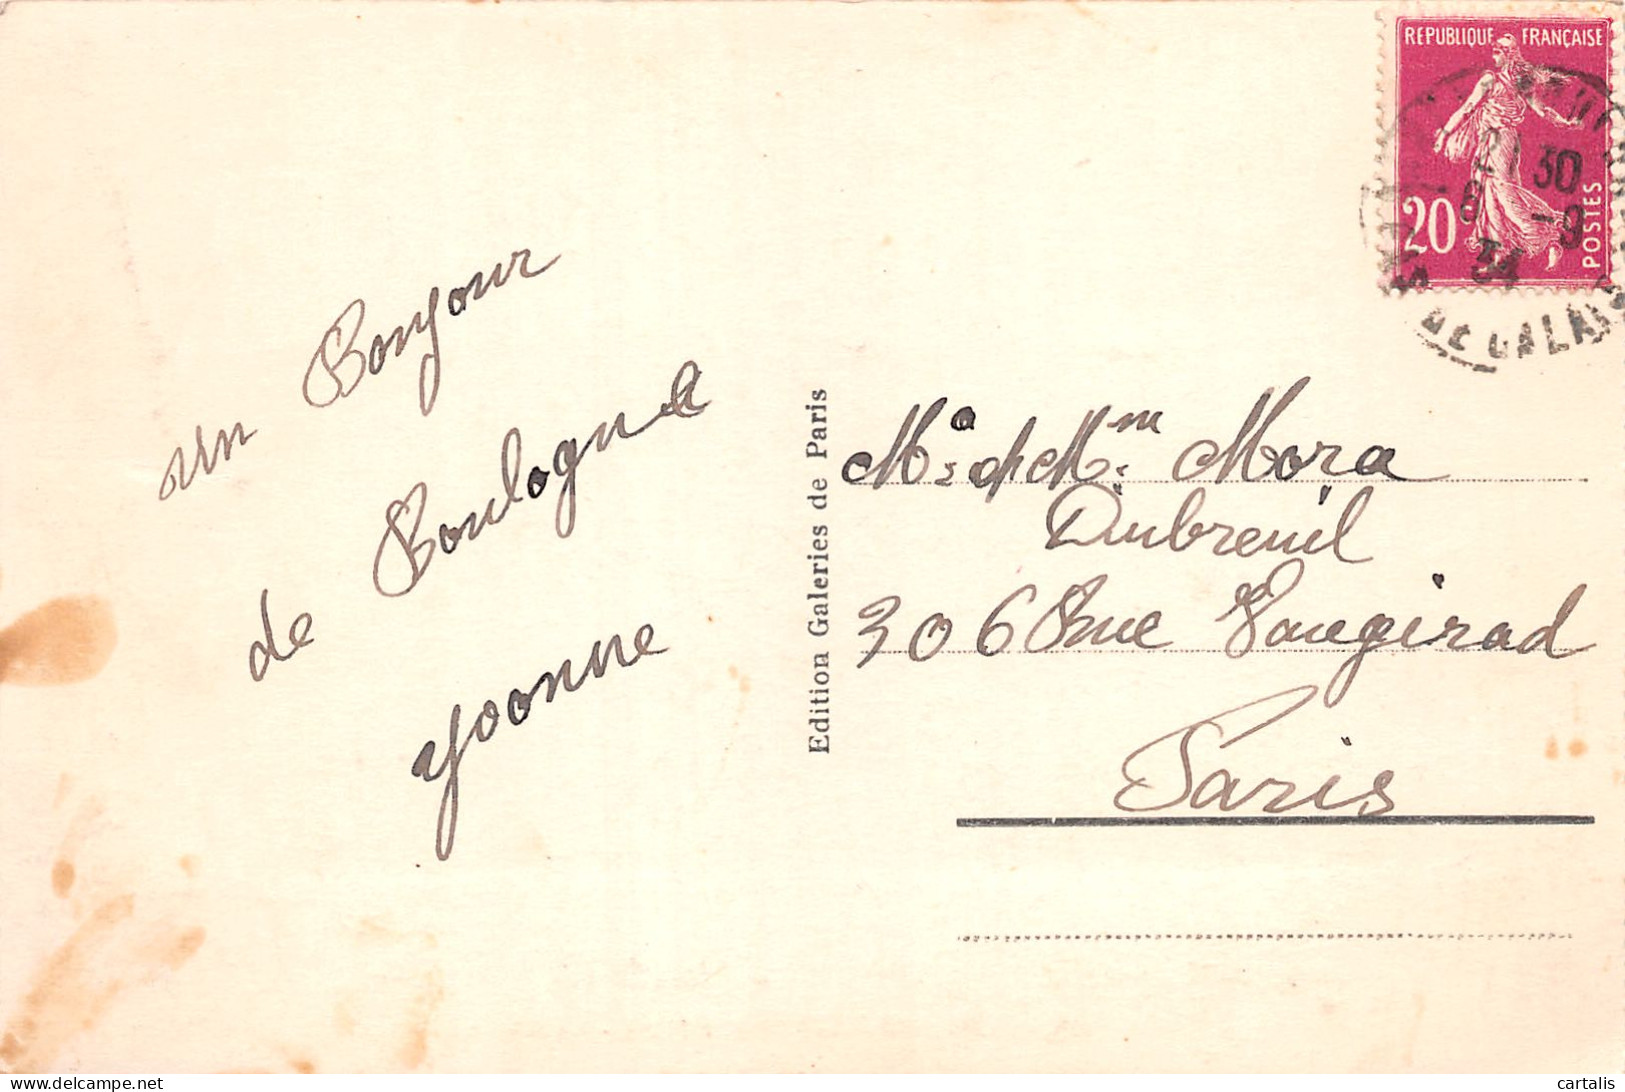 REPUBLIQUE FRANÇAISE
20c
POSTES
21 30
8 -9
34
PAS DE CALAIS
un Bonjour
de Boulogne
Yvonne
Edition Galeries de Paris
Mr et Mme Mora
Dubreuil
306 Rue Vaugirad
Paris
delcampe.net
cartalis